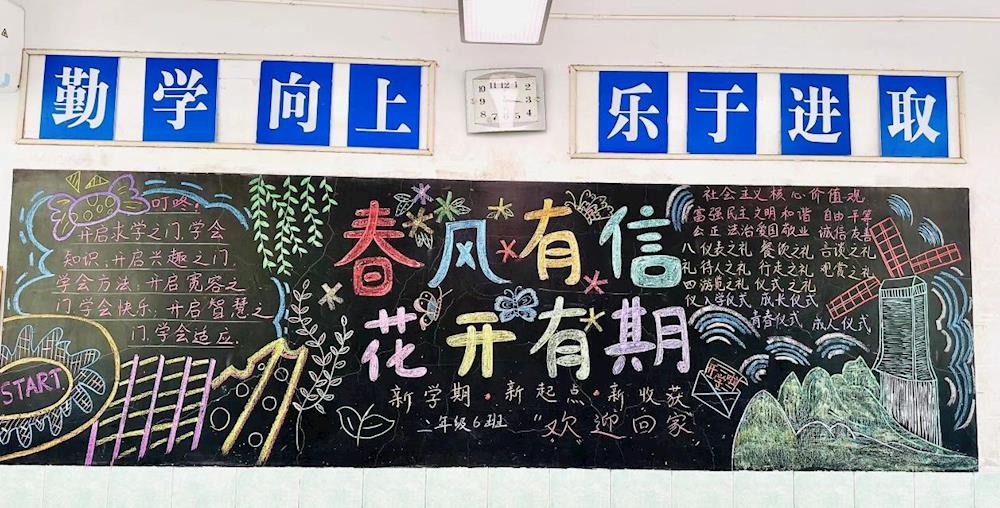 勤学向上
乐于进取
10 11 12 1 2 3 4 5 6 7 8 9
叮咚!
开启求学之门,学会
知识,开启兴趣之门,
学会方法;开启宽容之
门学会快乐,开启智慧之
门,学会适应.
START
春风有信
花开有期
新学期·新起点·新收获
二年级6班 "欢迎回家"
社会主义核心价值观
富强民主文明和谐 自由平等
公正法治爱国敬业 诚信友善
八 仪表之礼 餐饮之礼 言谈之礼
礼 待人之礼 行走之礼 观赏之礼
四 游览之礼 仪式之礼
仪 入学仪式 成长仪式
青春仪式 成人仪式